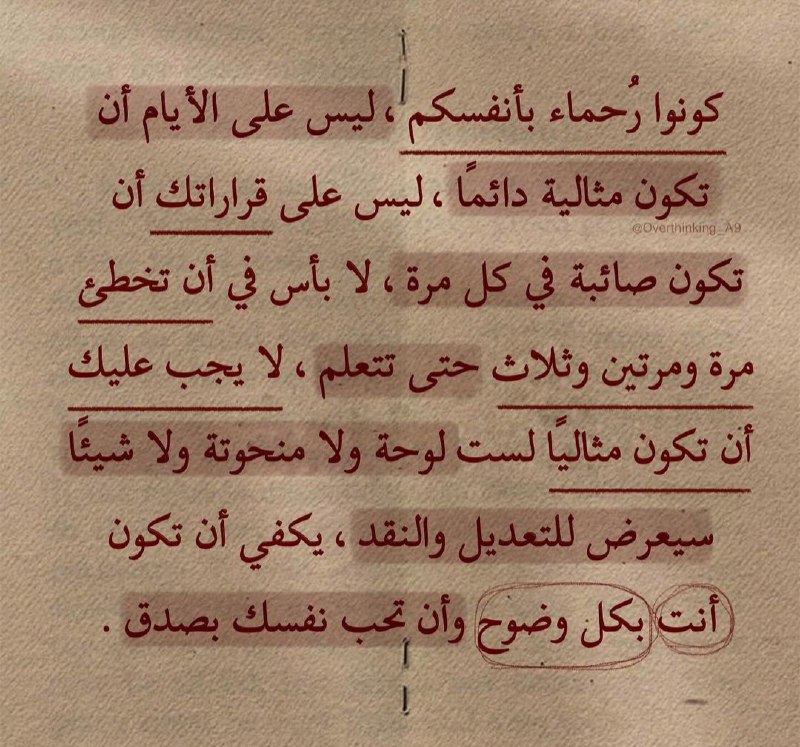 كونوا رُحماء بأنفسكم ، ليس على الأيام أن
تكون مثالية دائمًا ، ليس على قراراتك أن
@Overthinking_A9
تكون صائبة في كل مرة ، لا بأس في أن تخطئ
مرة ومرتين وثلاث حتى تتعلم ، لا يجب عليك
أن تكون مثاليًا لست لوحة ولا منحوتة ولا شيئًا
سيعرض للتعديل والنقد ، يكفي أن تكون
أنت بكل وضوح وأن تحب نفسك بصدق .